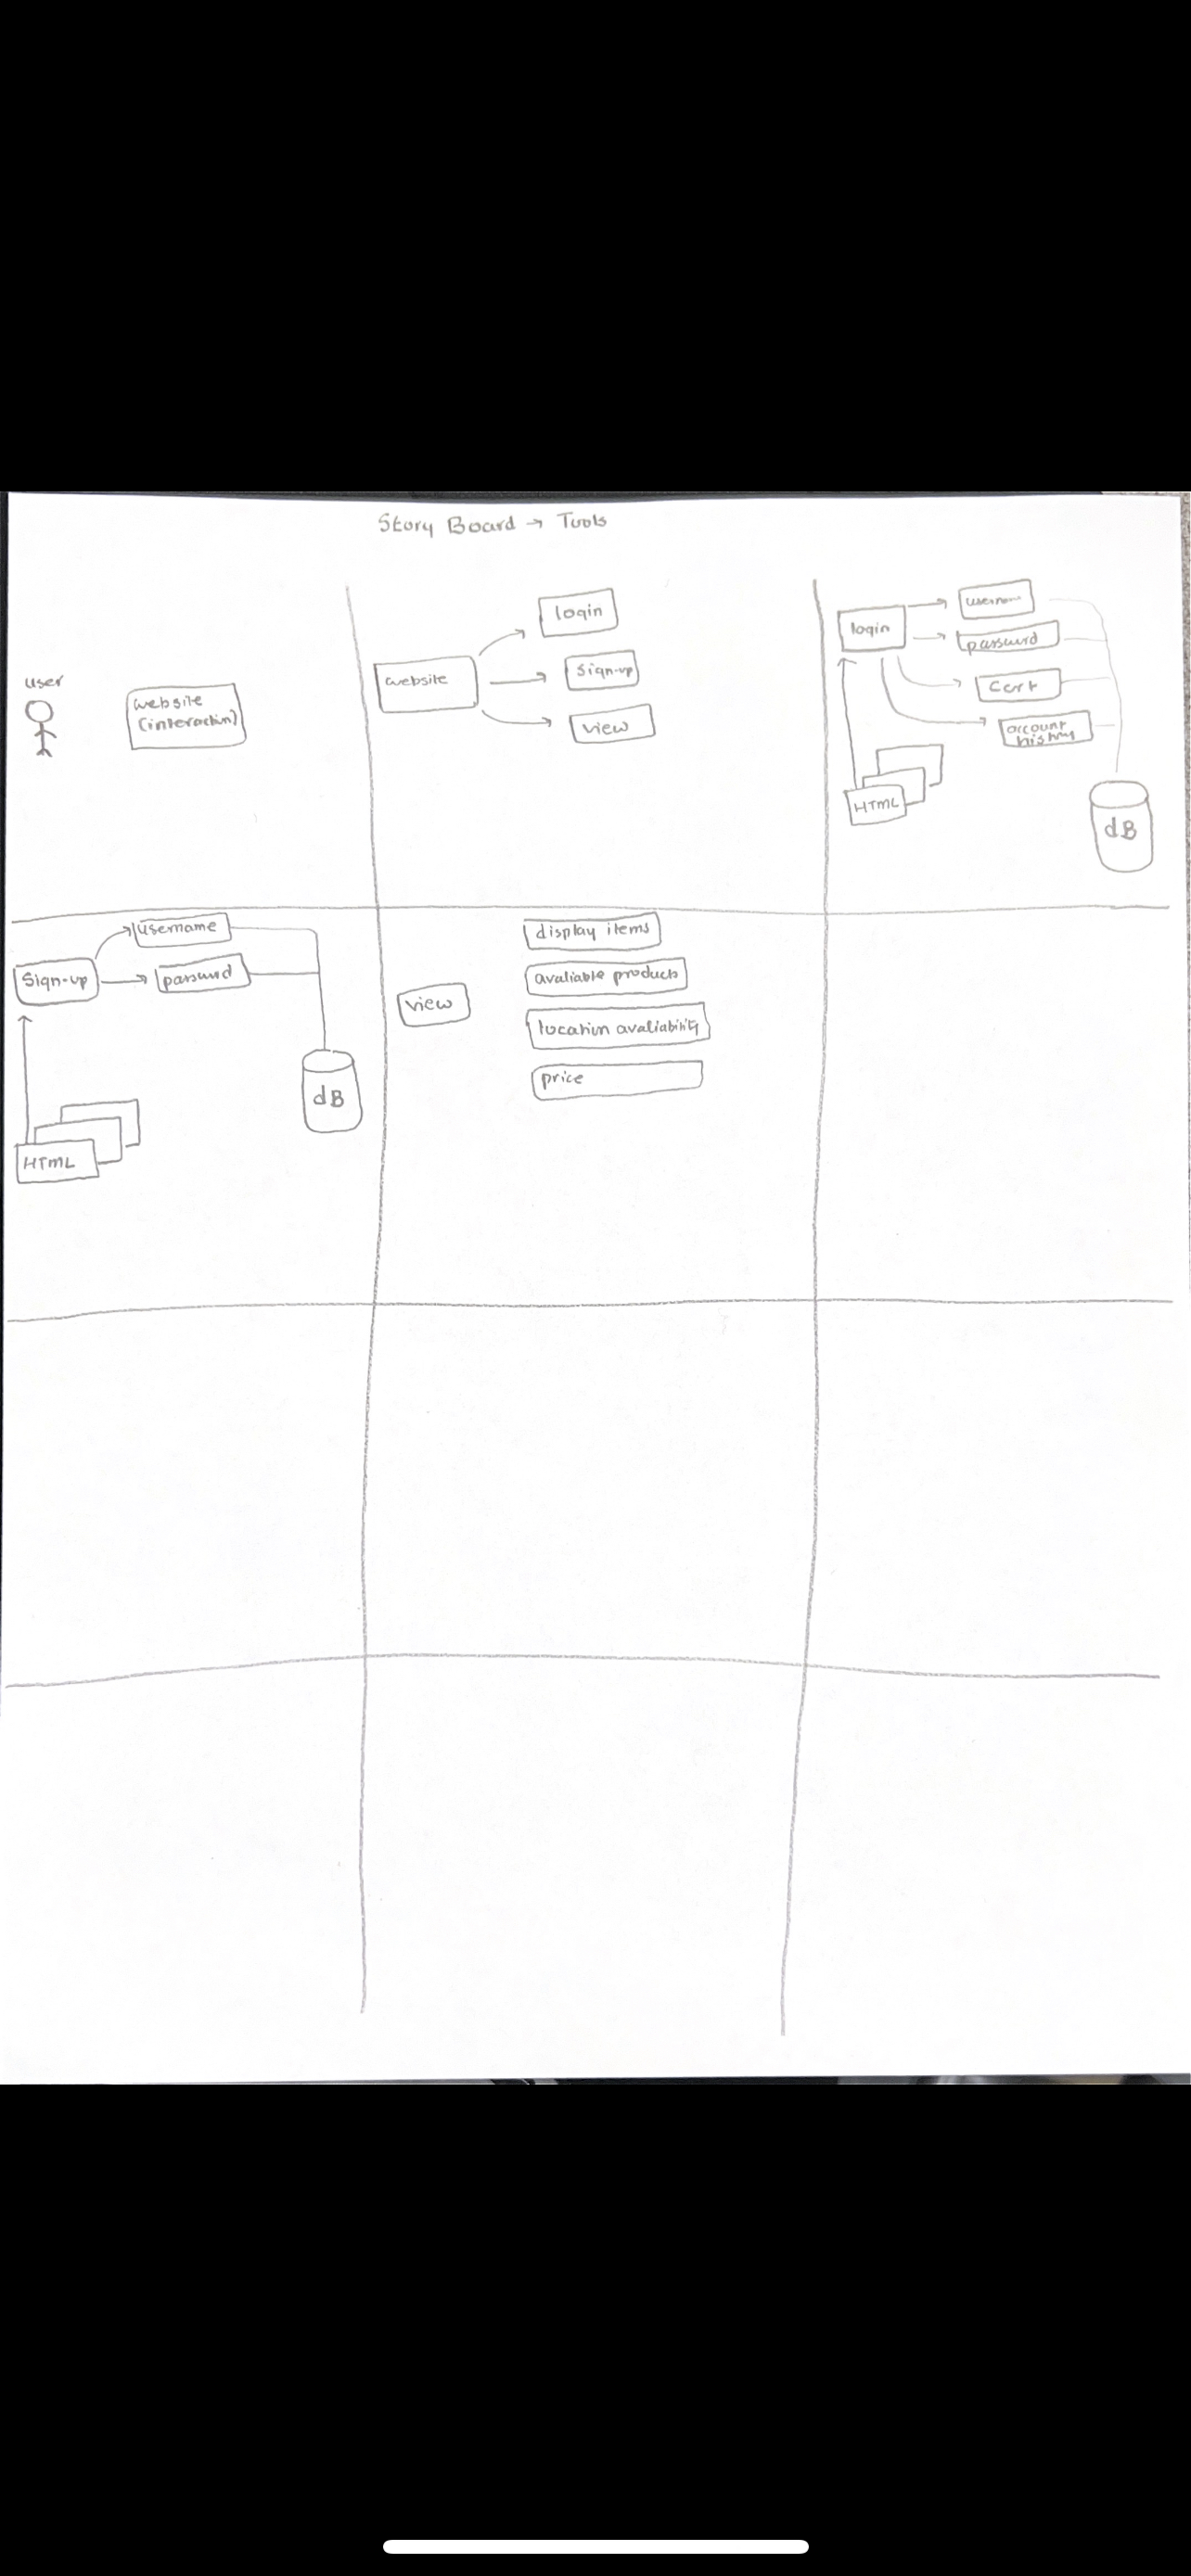 Story Board → Tools
user
website
(interaction)
website
login
sign-up
view
login
username
password
Cart
account
history
HTML
dB
Sign-up
username
password
HTML
dB
view
display items
avaliable products
location avaliability
price